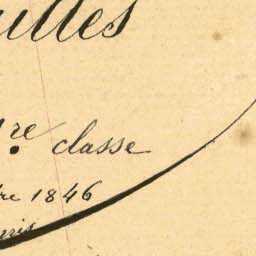 uilles
re classe
re 1846